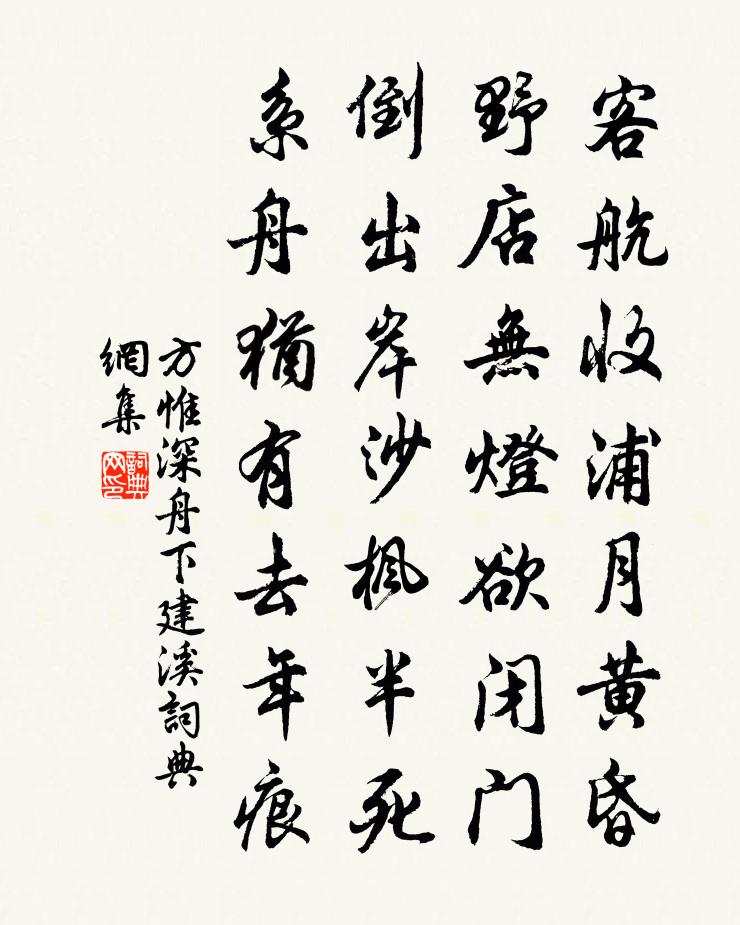 客航收浦月黄昏
野店無燈欲闭门
倒出岸沙楓半死
系舟猶有去年痕
方惟深舟下建溪詞典
網集
詞典
网印